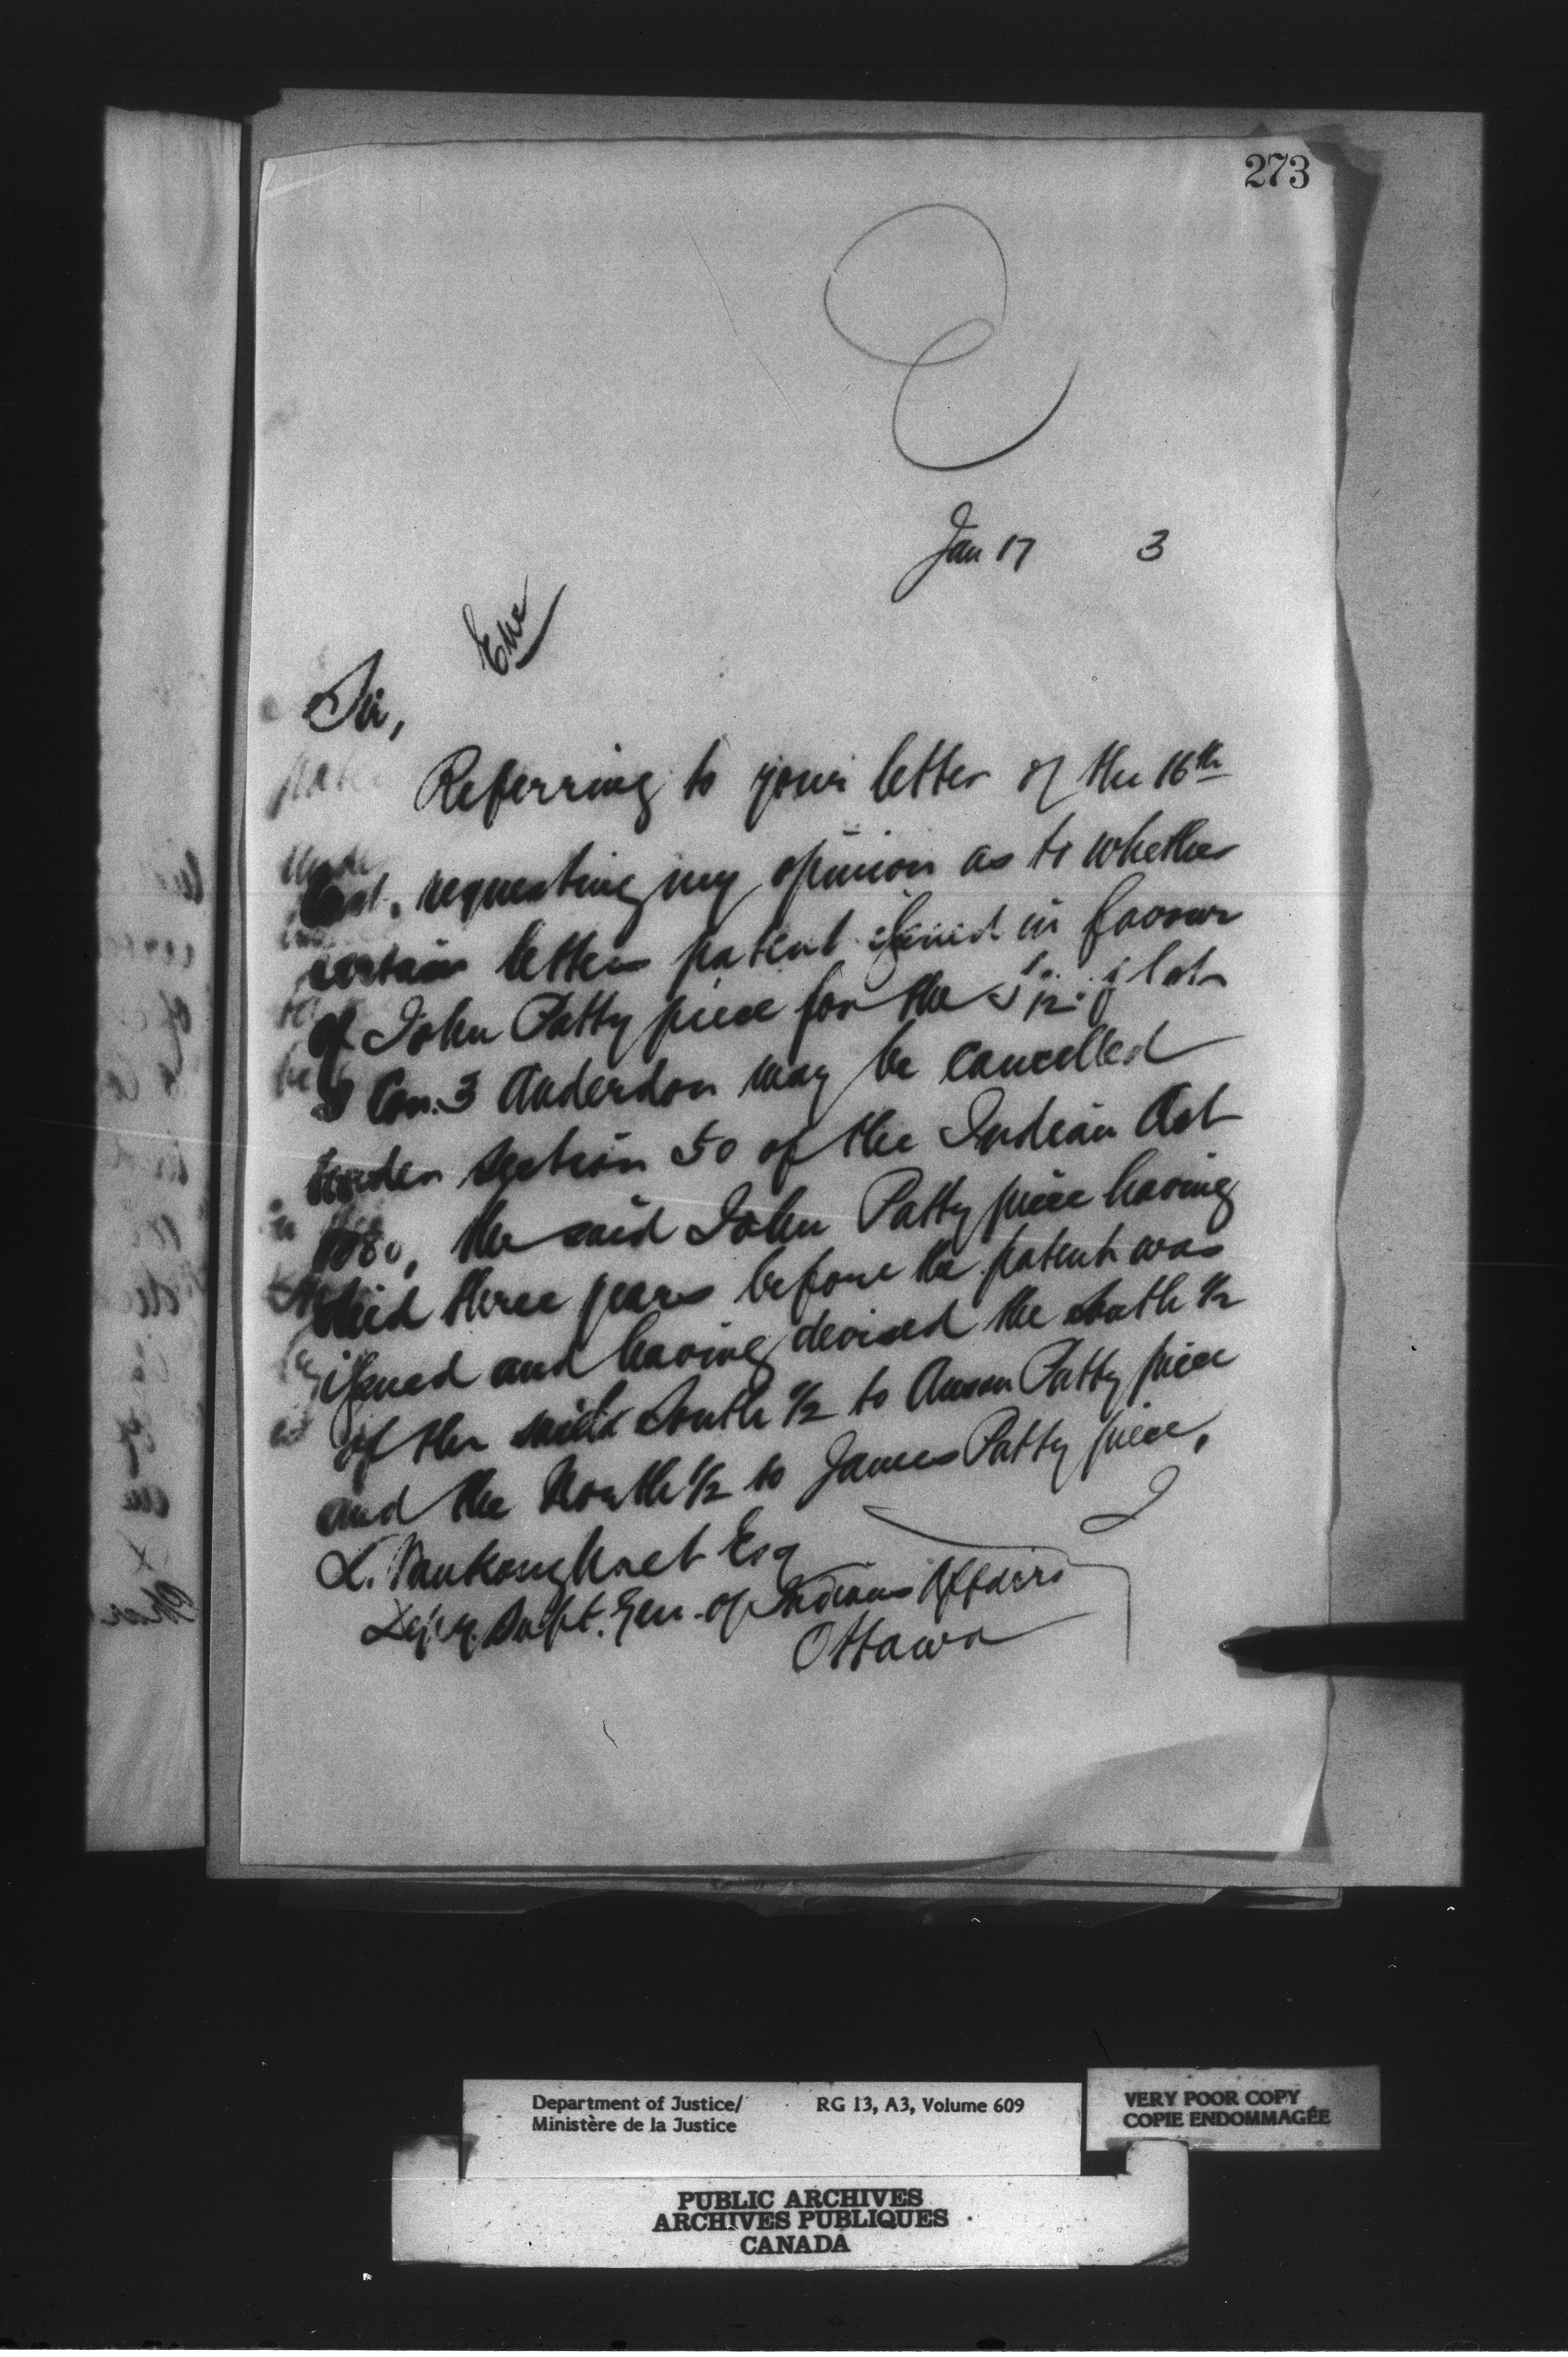 273
Jan 17 3
Sir,
Referring to your letter of the 16th
requesting my opinion as to whether
certain letters patent issued in favour
of John Patty piece for the S 1/2 of lot
Con. 3 Anderdon may be cancelled
under section 50 of the Indian Act
1880, the said John Patty piece having
died three years before the patent was
issued and having devised the South 1/2
of the said South 1/2 to Anson Patty piece
and the North 1/2 to James Patty piece,
I
L. Vankoughnet Esq
Dep'y. Supt. Gen. of Indian Affairs
Ottawa
Department of Justice/ RG 13, A3, Volume 609
Ministère de la Justice
VERY POOR COPY
COPIE ENDOMMAGÉE
PUBLIC ARCHIVES
ARCHIVES PUBLIQUES
CANADA